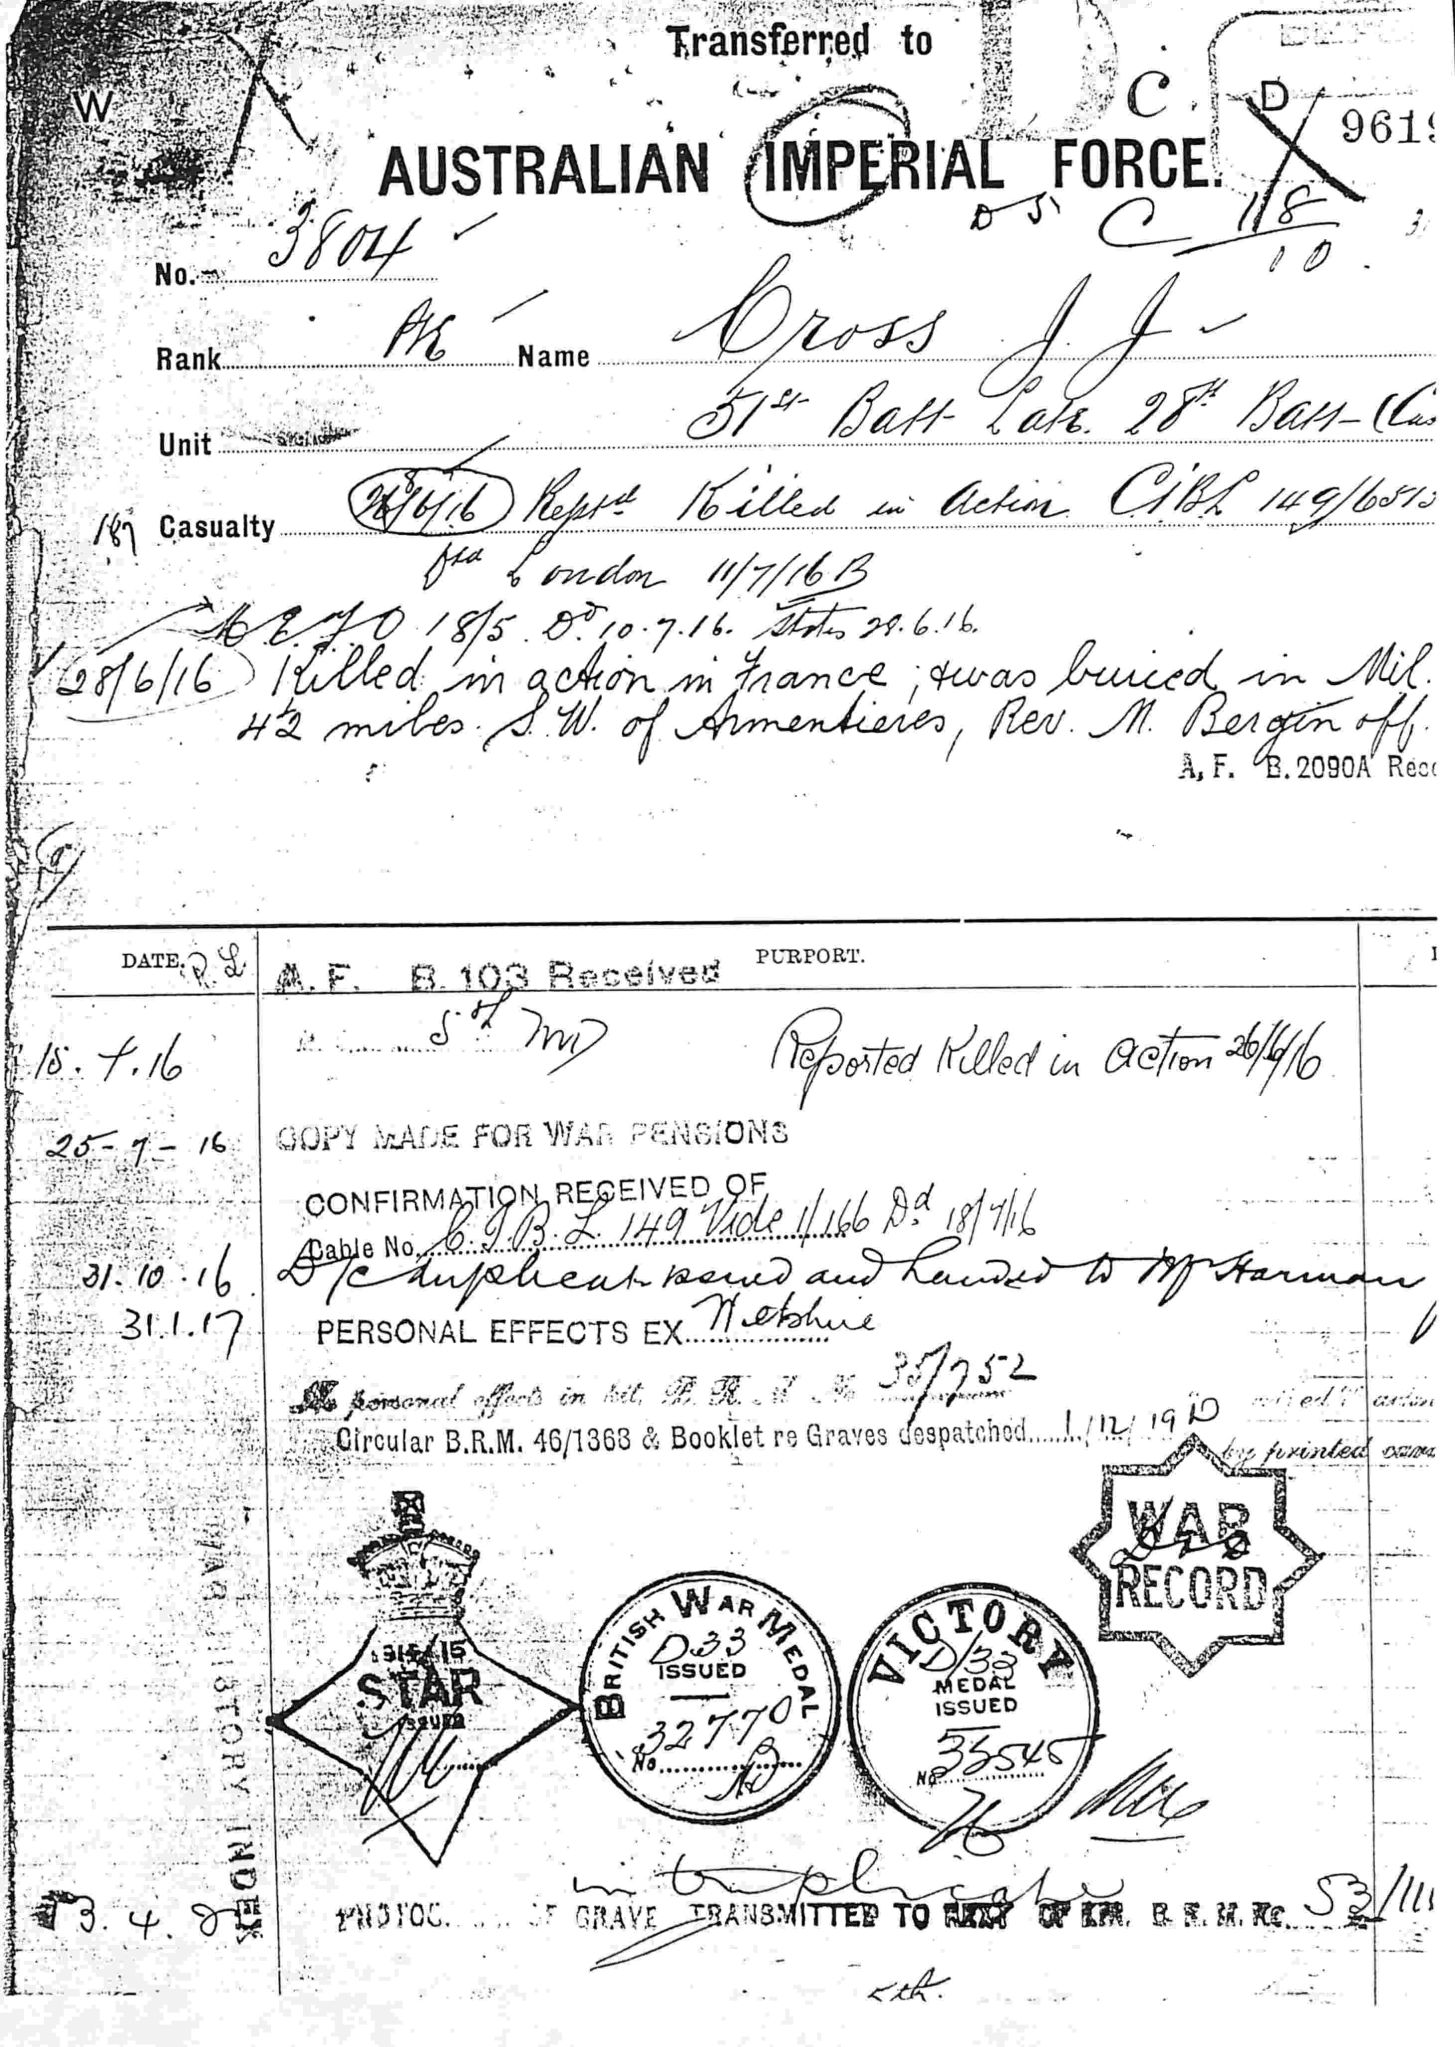 Transferred to
W
C.
D
9619
AUSTRALIAN IMPERIAL FORCE.
C 118
10.
No. 3804
Rank Pte Name Cross J. J.
Unit 51st Batt Late 28th Batt (Cas
187 Casualty 28/6/16 Reptd Killed in Action CABL 149/6513
London 11/7/16 B
18/5 Dd 10.7.16. states 28.6.16.
28/6/16 Killed in action in France, & was buried in Mil.
4½ miles S.W. of Armentieres, Rev. M. Bergin off.
A.F. B.2090A Rec
DATE. PURPORT.
A.F. B.103 Received
15.7.16 Reported Killed in Action 26/6/16
25-7-16 COPY MADE FOR WAR PENSIONS
CONFIRMATION RECEIVED OF
Cable No. 149 Vide 1/166 Dd 18/7/16
31.10.16 D/C duplicate issued and handed to Mr Harman
31.1.17 PERSONAL EFFECTS EX Wiltshire
personal effects in 35/752
Circular B.R.M. 46/1363 & Booklet re Graves despatched 1/12/19
by printed
WAR
RECORD
1914/15
STAR
ISSUED
BRITISH WAR MEDAL
D33
ISSUED
No 32770
VICTORY
D/33
MEDAL
ISSUED
No 33545
WAR HISTORY INDEX
in triplicate
3.4.2
OF GRAVE TRANSMITTED TO NEXT OF KIN. B.R.M. 53/111